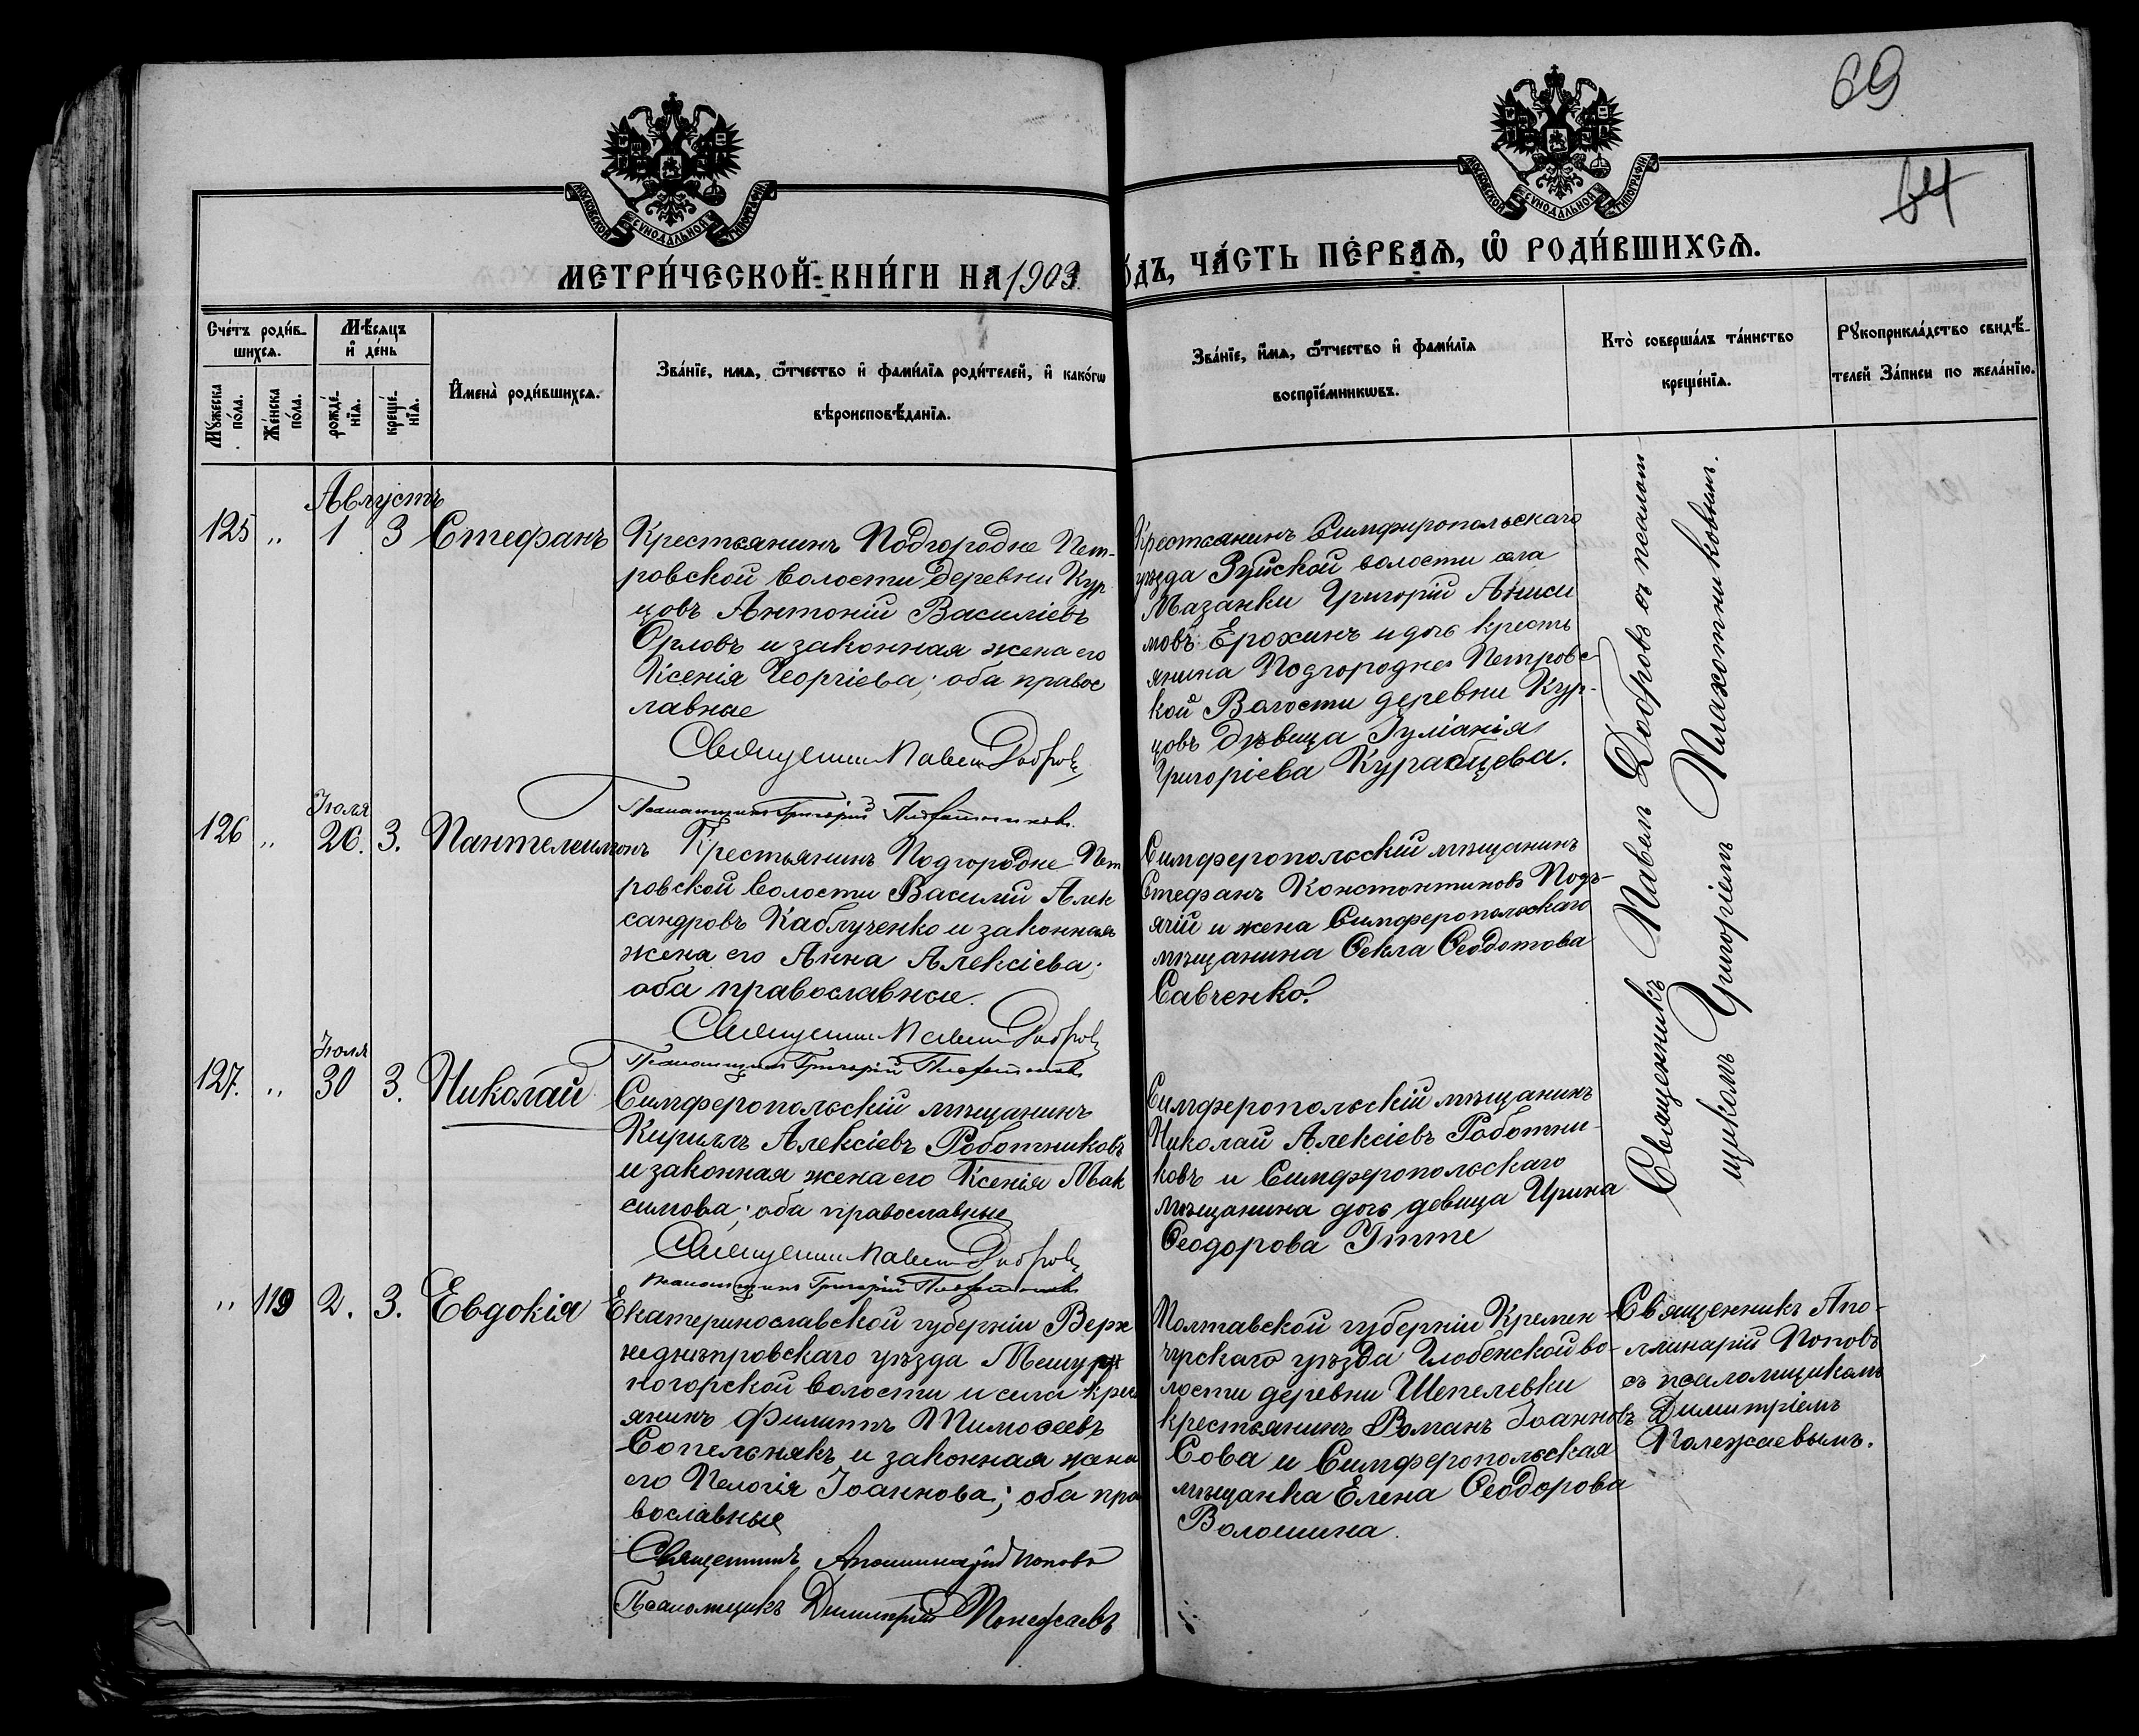 69
64
МОСКОВСКОЙ СѴНОДАЛЬНОЙ ТИПОГРАФІИ
МОСКОВСКОЙ СѴНОДАЛЬНОЙ ТИПОГРАФІИ
МЕТРИ́ЧЕСКОЙ КНИ́ГИ НА 1903
О́ДЪ, ЧА́СТЬ ПЕ́РВАѦ, Ѡ҆ РОДИ́ВШИХСѦ.
Сче́тъ роди́в-
шихсѧ.
Мꙋ́жеска по́ла.
Же́нска по́ла.
Мѣ́сѧцъ
и҆ де́нь
рожде́-
нїѧ.
креще́-
нїѧ.
И҆мена̀ роди́вшихсѧ.
Зва́нїе, имѧ, ѻ҆́тчество и҆ фами́лїѧ роди́телей, и҆ како́гѡ
вѣроисповѣ́данїѧ.
Зва́нїе, и҆́мѧ, ѻ҆́тчество и҆ фами́лїѧ
воспрїе́мникѡвъ.
Кто̀ соверша́лъ та́инство
креще́нїѧ.
Рꙋкоприкла́дство свидѣ́-
телей За́писи по жела́нїю.
Августъ
125 „ 1 3 Стефанъ
Крестьянинъ Подгородне Пет-
ровской волости деревни Кур
цовъ Антоній Василіевъ
Орловъ и законная жена его
Ксенія Георгіева; оба правос
лавные
Священник Павел Добров
Псаломщикъ Григорій Плахотниковъ.
Крестьянинъ Симферопольскаго
уѣзда Зуйской волости села
Мазанки Григорій Аниси
мовъ Ерохинъ и дочь кресть
янина Подгородне Петровс-
кой Волости деревни Кур-
цовъ дѣвица Іуліанія
Григоріева Курабцева.
Священникъ Павелъ Добровъ съ псалом
щикомъ Григоріемъ Плахотниковымъ.
Іюля
126 „ 26. 3. Пантелеимонъ
Крестьянинъ Подгородне Пет
ровской волости Василій Алек
сандровъ Каблученко и законная
жена его Анна Алексіева;
оба православные.
Священник Павел Добров
Псаломщикъ Григорій Плахотниковъ
Симферопольскій мѣщанинъ
Стефанъ Константиновъ Подъ-
ячій и жена Симферопольскаго
мѣщанина Ѳекла Ѳеодотова
Савченко.
Іюля
127. „ 30 3. Николай
Симферопольскій мѣщанинъ
Кириллъ Алексіевъ Работниковъ
и законная жена его Ксенія Мак
симова; оба православные
Священник Павел Добров
Псаломщикъ Григорій Плахотниковъ
Симферопольскій мѣщанинъ
Николай Алексіевъ Работни-
ковъ и Симферопольскаго
мѣщанина дочь девица Ирина
Ѳеодорова
„ 119 2. 3. Евдокія
Екатеринославской губерніи Верх
неднѣпровскаго уѣзда Мешури
ногорской волости и села крест
янинъ Филиппъ Тимоѳеевъ
Сопельнякъ и законная жена
его Пелагія Іоаннова; оба пра
вославные
Священникъ Аполлинарій Поповъ
Псаломщикъ Димитрій Полежаевъ
Полтавской губерніи Кремен-
чугскаго уѣзда Глобенской во-
лости деревни Шепелевки
крестьянинъ Романъ Іоанновъ
Сова и Симферопольская
мѣщанка Елена Ѳеодорова
Волошина.
Священникъ Апо-
ллинарій Поповъ
съ псаломщикомъ
Димитріемъ
Полежаевымъ.